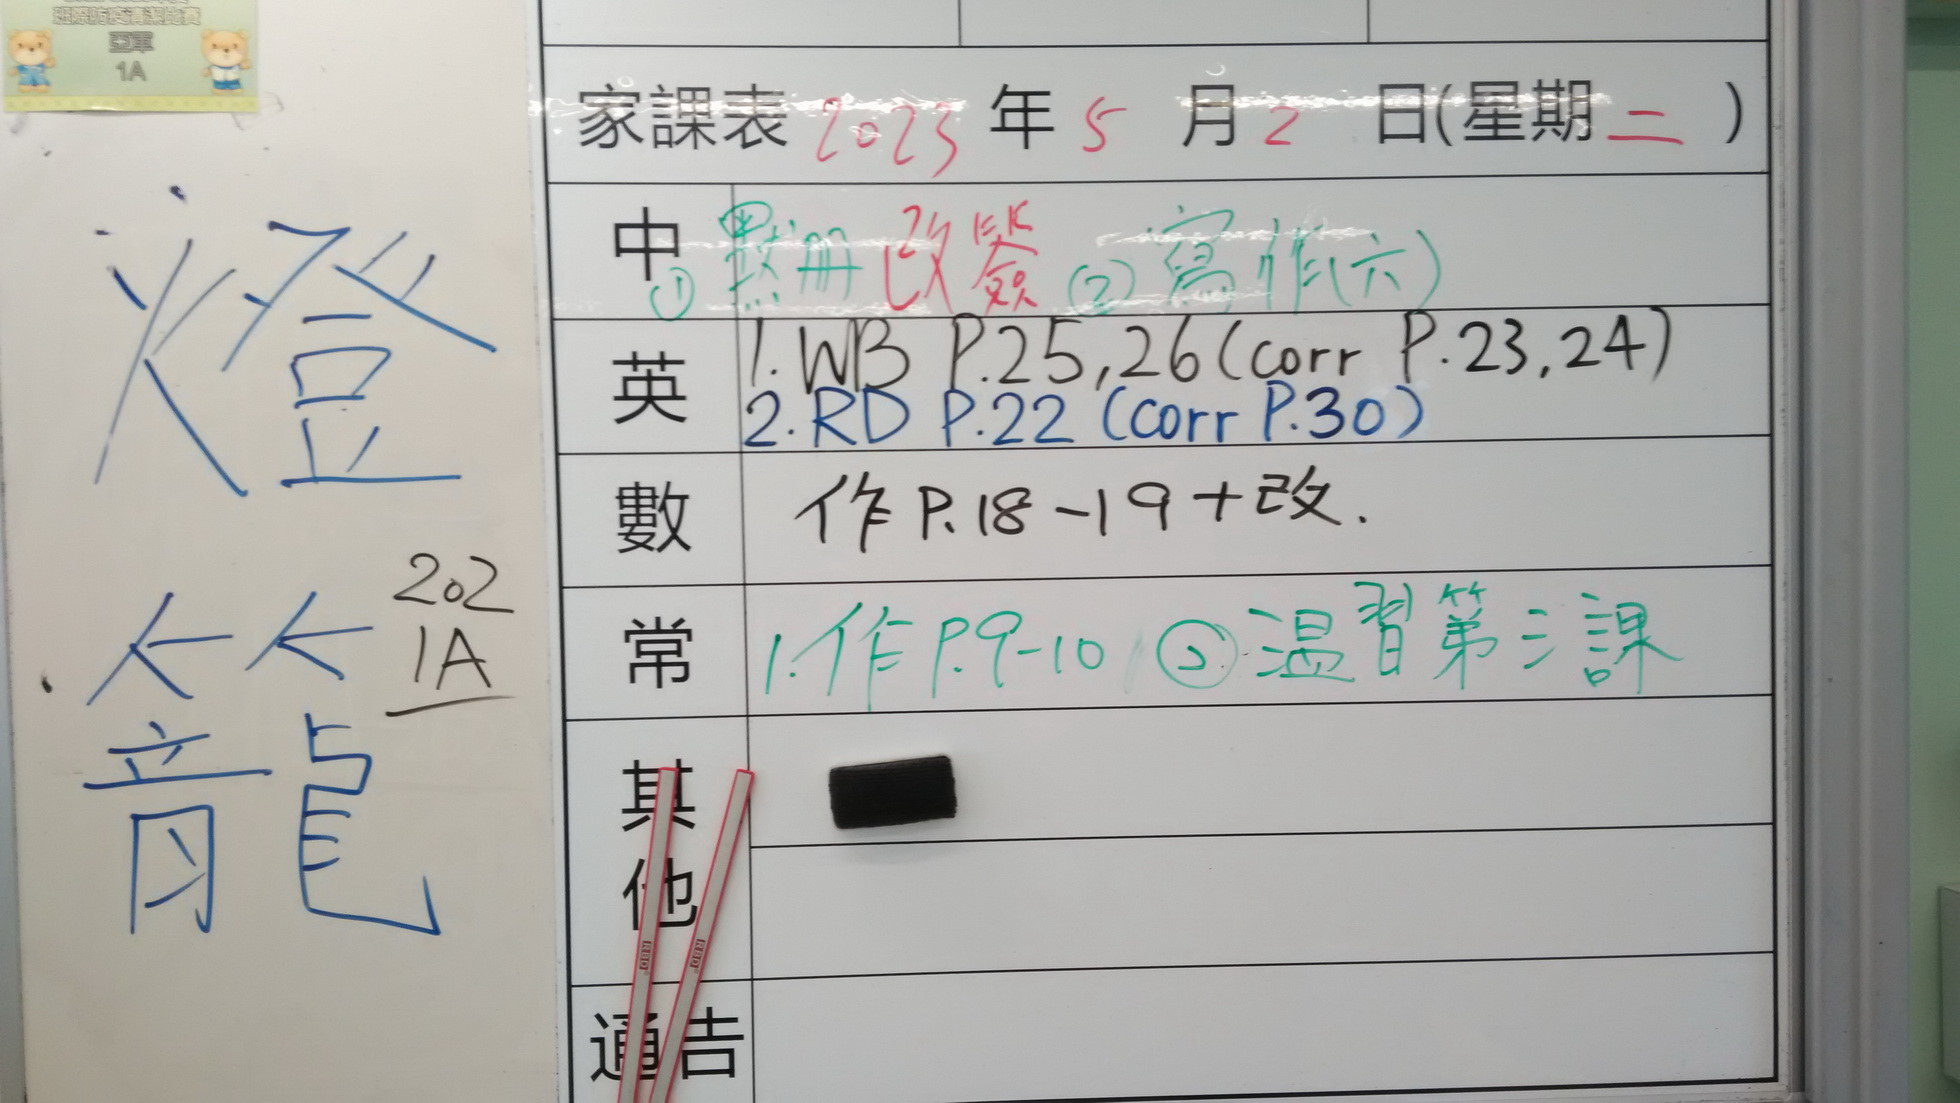 班際防疫清潔比賽
亞軍
1A
燈
籠
202
1A
家課表 2023 年 5 月 2 日(星期二)
中 ① 默冊 改簽 ② 寫作(六)
英 1. WB P.25,26 (corr P.23,24)
2. RD P.22 (corr P.30)
數 作 P.18-19 + 改.
常 1. 作 P.9-10 ② 温習第三課
其他
通告